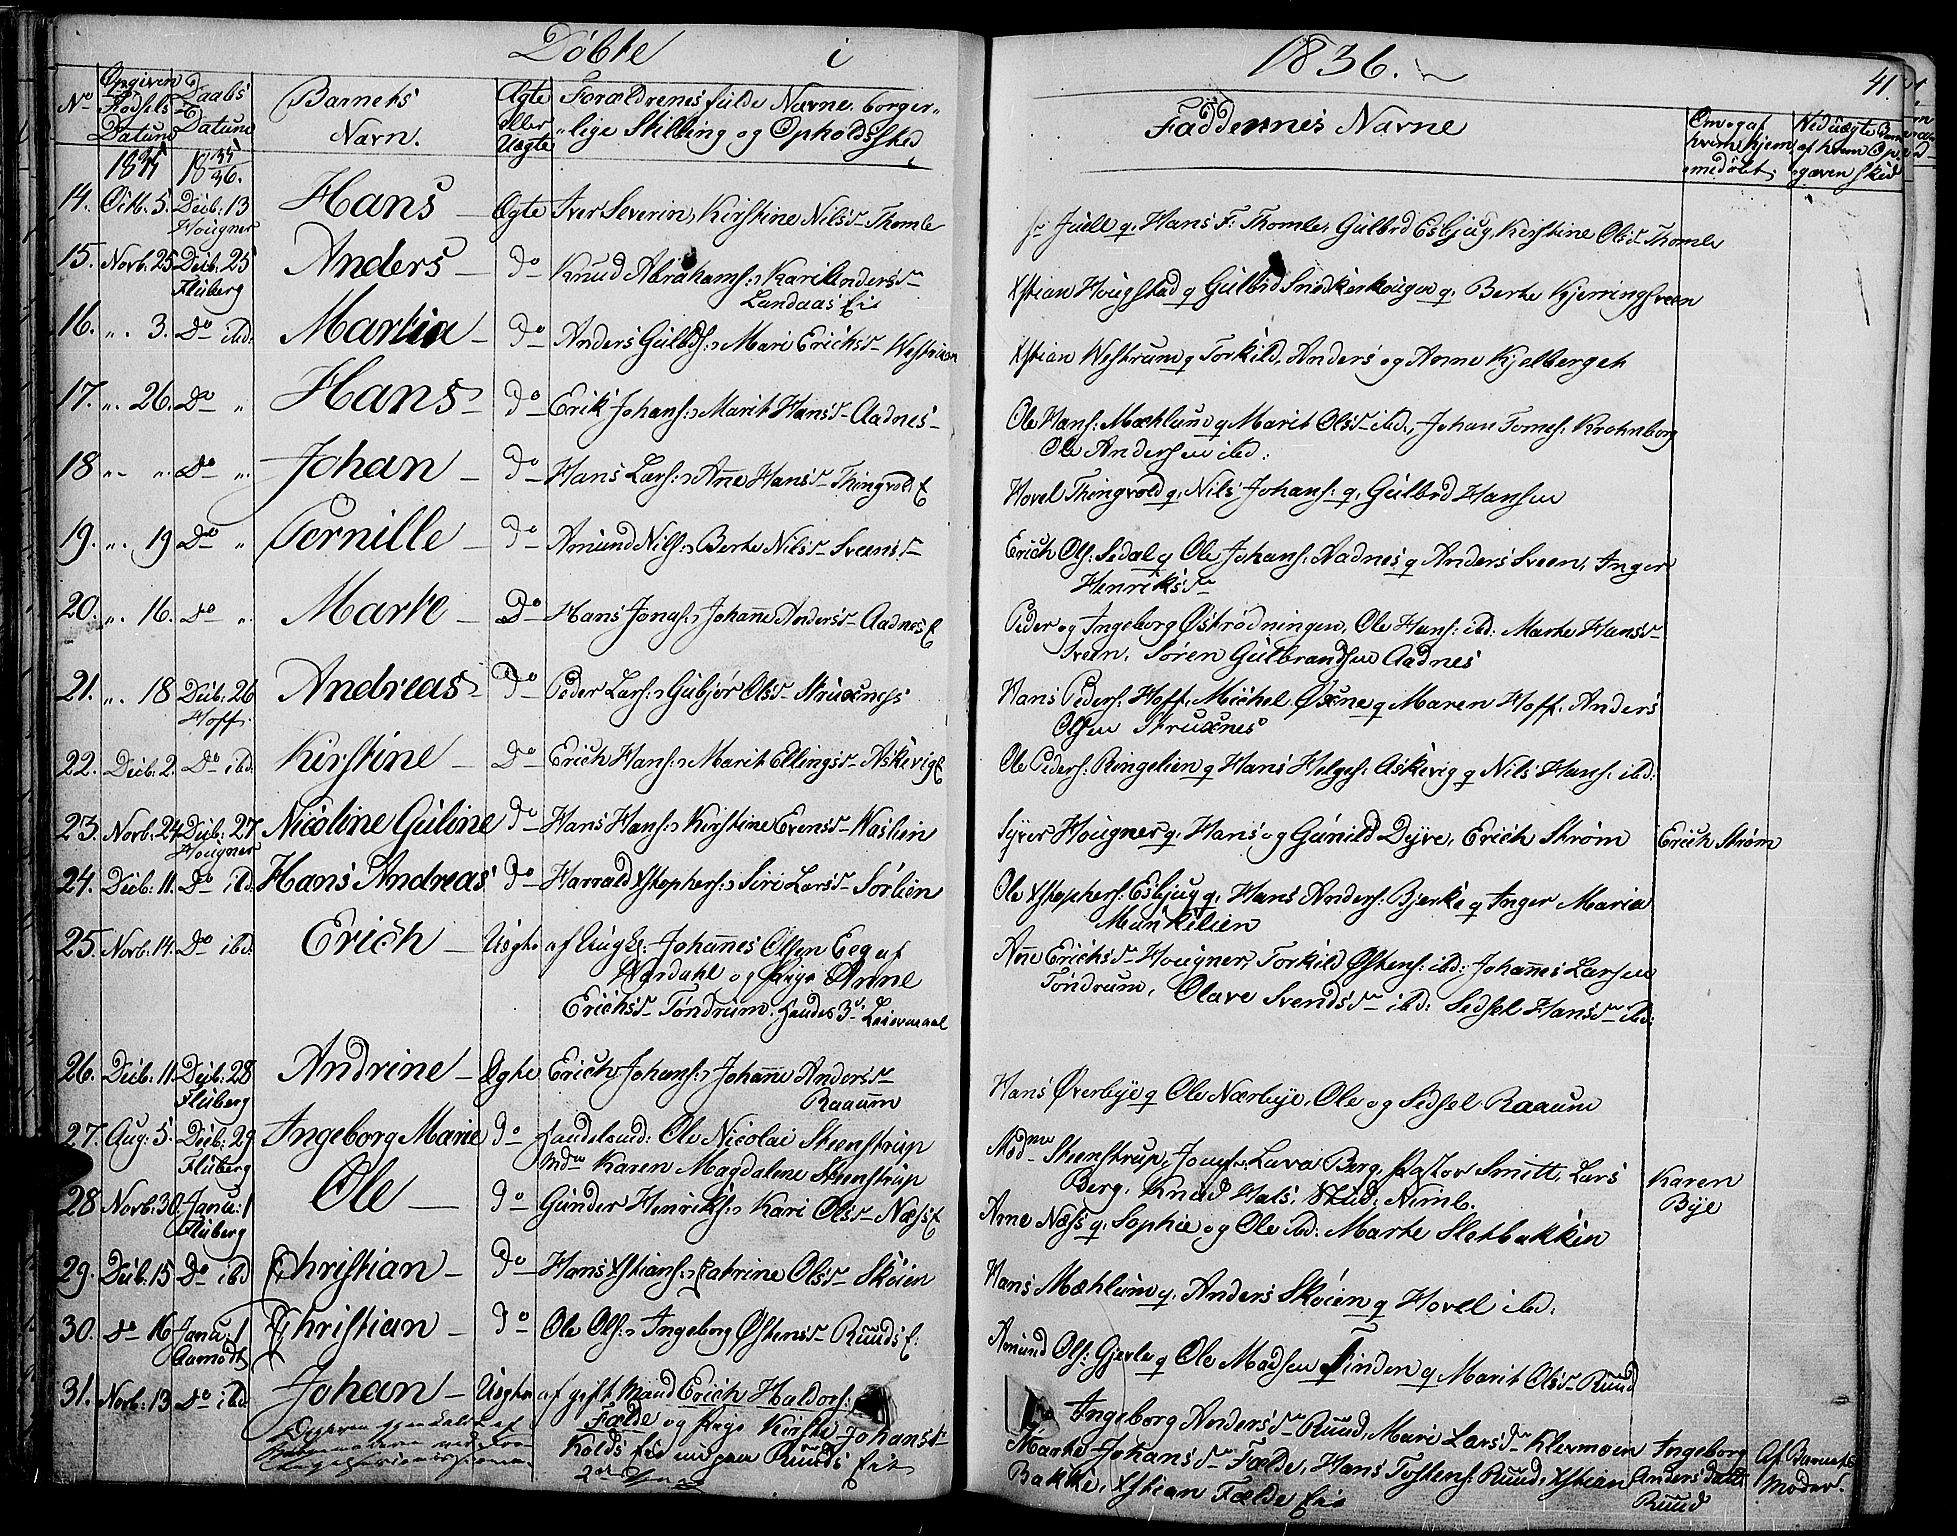 Döbte i 1836.
41.
No
Opgiven Födsels Datum
Daabs Datum
Barnets Navn.
Ægte eller Uægte
Forældrenes fulde Navne, borgerlige Stilling og Opholdssted
Faddernes Navne
Om og af hvem hjemmedøbt
Ved uægte Børn af hvem Opgaven skeed
1835 1835/36.
14. Octb. 5. Decb: 13 Hougner Hans Ægte Iver Severin, Kirstine Nilsd. Thomle
Juell q, Hans F: Thomle, Gulbrd Esbjug, Kirstine Olsd. Thomle
15. Novb. 25 Decb. 25 Fluberg Anders do Knud Abrahams: Kari Andersd.
Landaas Eie
Xstian Hougstad q Gulbrd Snedkerhougen q, Berte Kjerringsveen
16. „ 3. Do ibd. Martin do Anders Gulbds: Mari Erichsd. Westrum
Xstian Westrum q Torkild, Anders og Anne Kjelberget
17. „ 26. Do „ Hans do Erik Johans: Marit Hansd. Aadnes
Ole Hans: Mæhlum q Marit Olsd. ibd., Johan Tomes: Krohnborg
Ole Andersen ibd:
18 „ „ Do „ Johan do Hans Lars: Anne Hansd. Thingvold E
Hovel Thingvold q, Nils Johans: q, Gulbrd Hansen
19. „ 19 Do „ Pernille do Amund Nils: Berte Nilsd. Sveen
Erich Ols: Sedal q Ole Johans: Aadnes q Anders Sveen, Inger
Henriksd.
20. „ 16. Do „ Marte Do Hans Jonas: Johanne Andersd. Aadnes E
Peder og Ingeborg Østrødningen, Ole Hans: ibd: Marte Hansd.
Sveen, Sören Gulbrandsen Aadnes
21. „ 18 Decb. 26 Hoff. Andreas do Peder Lars: Gubjör Olsd. Struxnes
Hans Peders: Hoff, Michel Øxne q Maren Hoff, Anders
Olsen Struxnes
22. Decb. 2. Do ibd. Kirstine Do Erich Hans: Marit Ellingsd. Askevig E
Ole Peders: Ringelien q Hans Helges: Askevig q Nils Hans: ibd:
23. Novb. 24 Decb. 27 Hougner Nicoline Guline do Hans Hans: Kirstine Evensd. Waslien
Syver Hougner q, Hans og Gunild Dyre, Erich Strøm
Erich Strøm
24. Decb: 11. Do ibd. Hans Andreas do Harrald Xstophers: Siri Larsd. Sörlien
Ole Xstophers: Esbjug q, Hans Anders: Bjerke q Inger Maria
Munkelien
25. Novb. 14. Do ibd. Erich Uægte af Ungk. Johannes Olsen Eeg af
Aurdahl og Pige Anne
Erichsd. Töndrum. Hendes 3d. Leiermaal
Ane Erichsd. Hougner, Torkild Østens: ibd: Johannes Larsen
Tøndrum, Olave Svendsd. ibd: Sedsel Hansd. ibd:
26. Decb: 11. Decb: 28 Fluberg Andrine Ægte Erich Johans: Johanne Andersd.
Raaum
Hans Øverbye q Ole Nærbye, Ole og Sedsel Raaum
27. Aug: 5. Decb. 29 Fluberg Ingeborg Marie do Handelsmd: Ole Nicolai Steenstrup
Mdm Karen Magdalene Steenstrup
Madme Steenstrup, Jomf: Lava Berg, Pastor Smitt, Lars
Berg, Knud Hals,
Karen Bye
28 Novb. 30. Janu: 1 Fluberg Ole do Gunder Henriks: Kari Olsd. Næss E
Arne Næss q, Sophie og Ole ibd: Marte Sletbakken
29. Decb. 15 Do ibd Christian do Hans Xstians: Catrine Olsd. Skøien
Hans Mæhlum q, Anders Skoien q Hovel ibd:
30. Do 16 Janu: 1 Aamodt Christian do Ole Ols: Ingeborg Østensd. Ruuds E:
Amund Ols: Gjerle q Ole Madsen Finden q Marit Olsd. Ruud
31. Novb: 13 Do ibd Johan Uægte af gift Mand Erich Haldors:
Fælde og Pige Kirsti Johansd.
Kolds Eie Ruuds Eie
Ingeborg Andersd. Ruud, Mari Larsd. Klevmoen
Marte Johansd. Fælde, Hans Tostens: Ruud, Xstian
Bakke, Xstian Fælde Eie
Ingeborg Andersdatt Ruud
Af Barnets Moder.